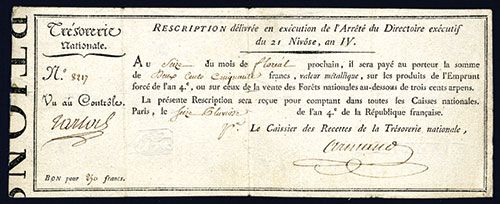 RESCRIPTION délivrée en exécution de l'Arrêté du Directoire exécutif
du 21 Nivôse, an IV.
Trésorerie
Nationale.
N.º 8217
Vu au Contrôle.
BON pour 250 francs.
AU Seize du mois de floréal prochain, il sera payé au porteur la somme
de Deux Cents Cinquante francs, valeur métallique, sur les produits de l'Emprunt
forcé de l'an 4.e, ou sur ceux de la vente des Forêts nationales au-dessous de trois cents arpens.
La présente Rescription sera reçue pour comptant dans toutes les Caisses nationales.
Paris, le Seize Pluviôse de l'an 4.e de la République française.
Le Caissier des Recettes de la Trésorerie nationale,
PTIONS